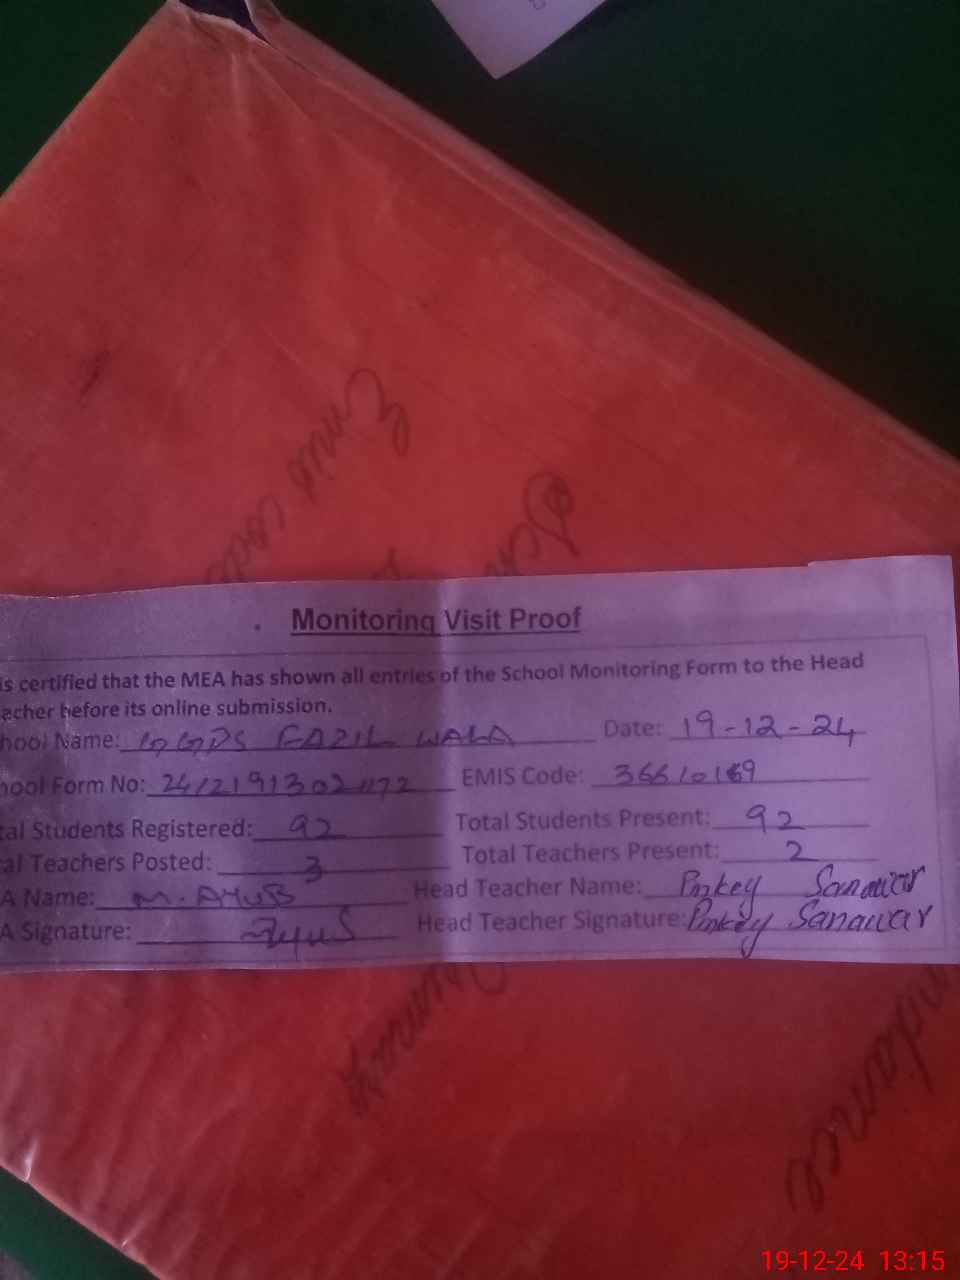 Emis code
Monitoring Visit Proof
is certified that the MEA has shown all entries of the School Monitoring Form to the Head
acher before its online submission.
hool Name: GGPS FAZIL WALA Date: 19-12-24
hool Form No: EMIS Code:
tal Students Registered: 92 Total Students Present: 92
al Teachers Posted: 3 Total Teachers Present: 2
A Name: M. AYUB Head Teacher Name: Pinkey Sanawar
A Signature: Ayub Head Teacher Signature: Pinkey Sanawar
19-12-24 13:15